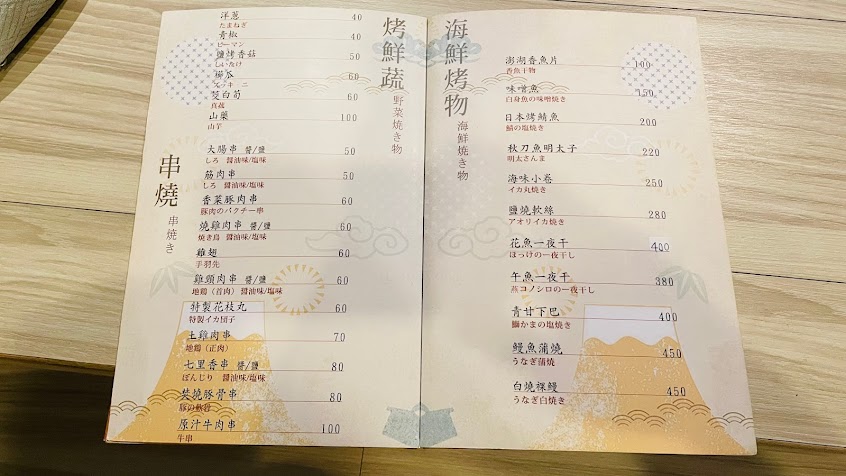 烤鮮蔬 野菜焼き物
洋蔥 40
たまねぎ
青椒 40
ピーマン
鹽烤香菇 50
しいたけ
櫛瓜 60
ズッキーニ
茭白筍 60
真菰
山藥 100
山芋
串燒 串焼き
大腸串 醬/鹽 50
しろ 醤油味/塩味
筋肉串 50
しろ 醤油味/塩味
香菜豚肉串 60
豚肉のパクチー串
燒雞肉串 醬/鹽 60
焼き鳥 醤油味/塩味
雞翅 60
手羽先
雞頸肉串 醬/鹽 60
地鶏(首肉) 醤油味/塩味
特製花枝丸 60
特製イカ団子
土雞肉串 70
地鶏(正肉)
七里香串 醬/鹽 80
ぼんじり 醤油味/塩味
炭燒豚骨串 80
豚の軟骨
原汁牛肉串 100
牛串
海鮮烤物 海鮮焼き物
澎湖香魚片 100
香魚干物
味噌魚 150
白身魚の味噌焼き
日本烤鯖魚 200
鯖の塩焼き
秋刀魚明太子 220
明太さんま
海味小卷 250
イカ丸焼き
鹽燒軟絲 280
アオリイカ焼き
花魚一夜干 400
ほっけの一夜干し
午魚一夜干 380
燕コノシロの一夜干し
青甘下巴 400
鰤かまの塩焼き
鰻魚蒲燒 450
うなぎ蒲焼
白燒裸鰻 450
うなぎ白焼き